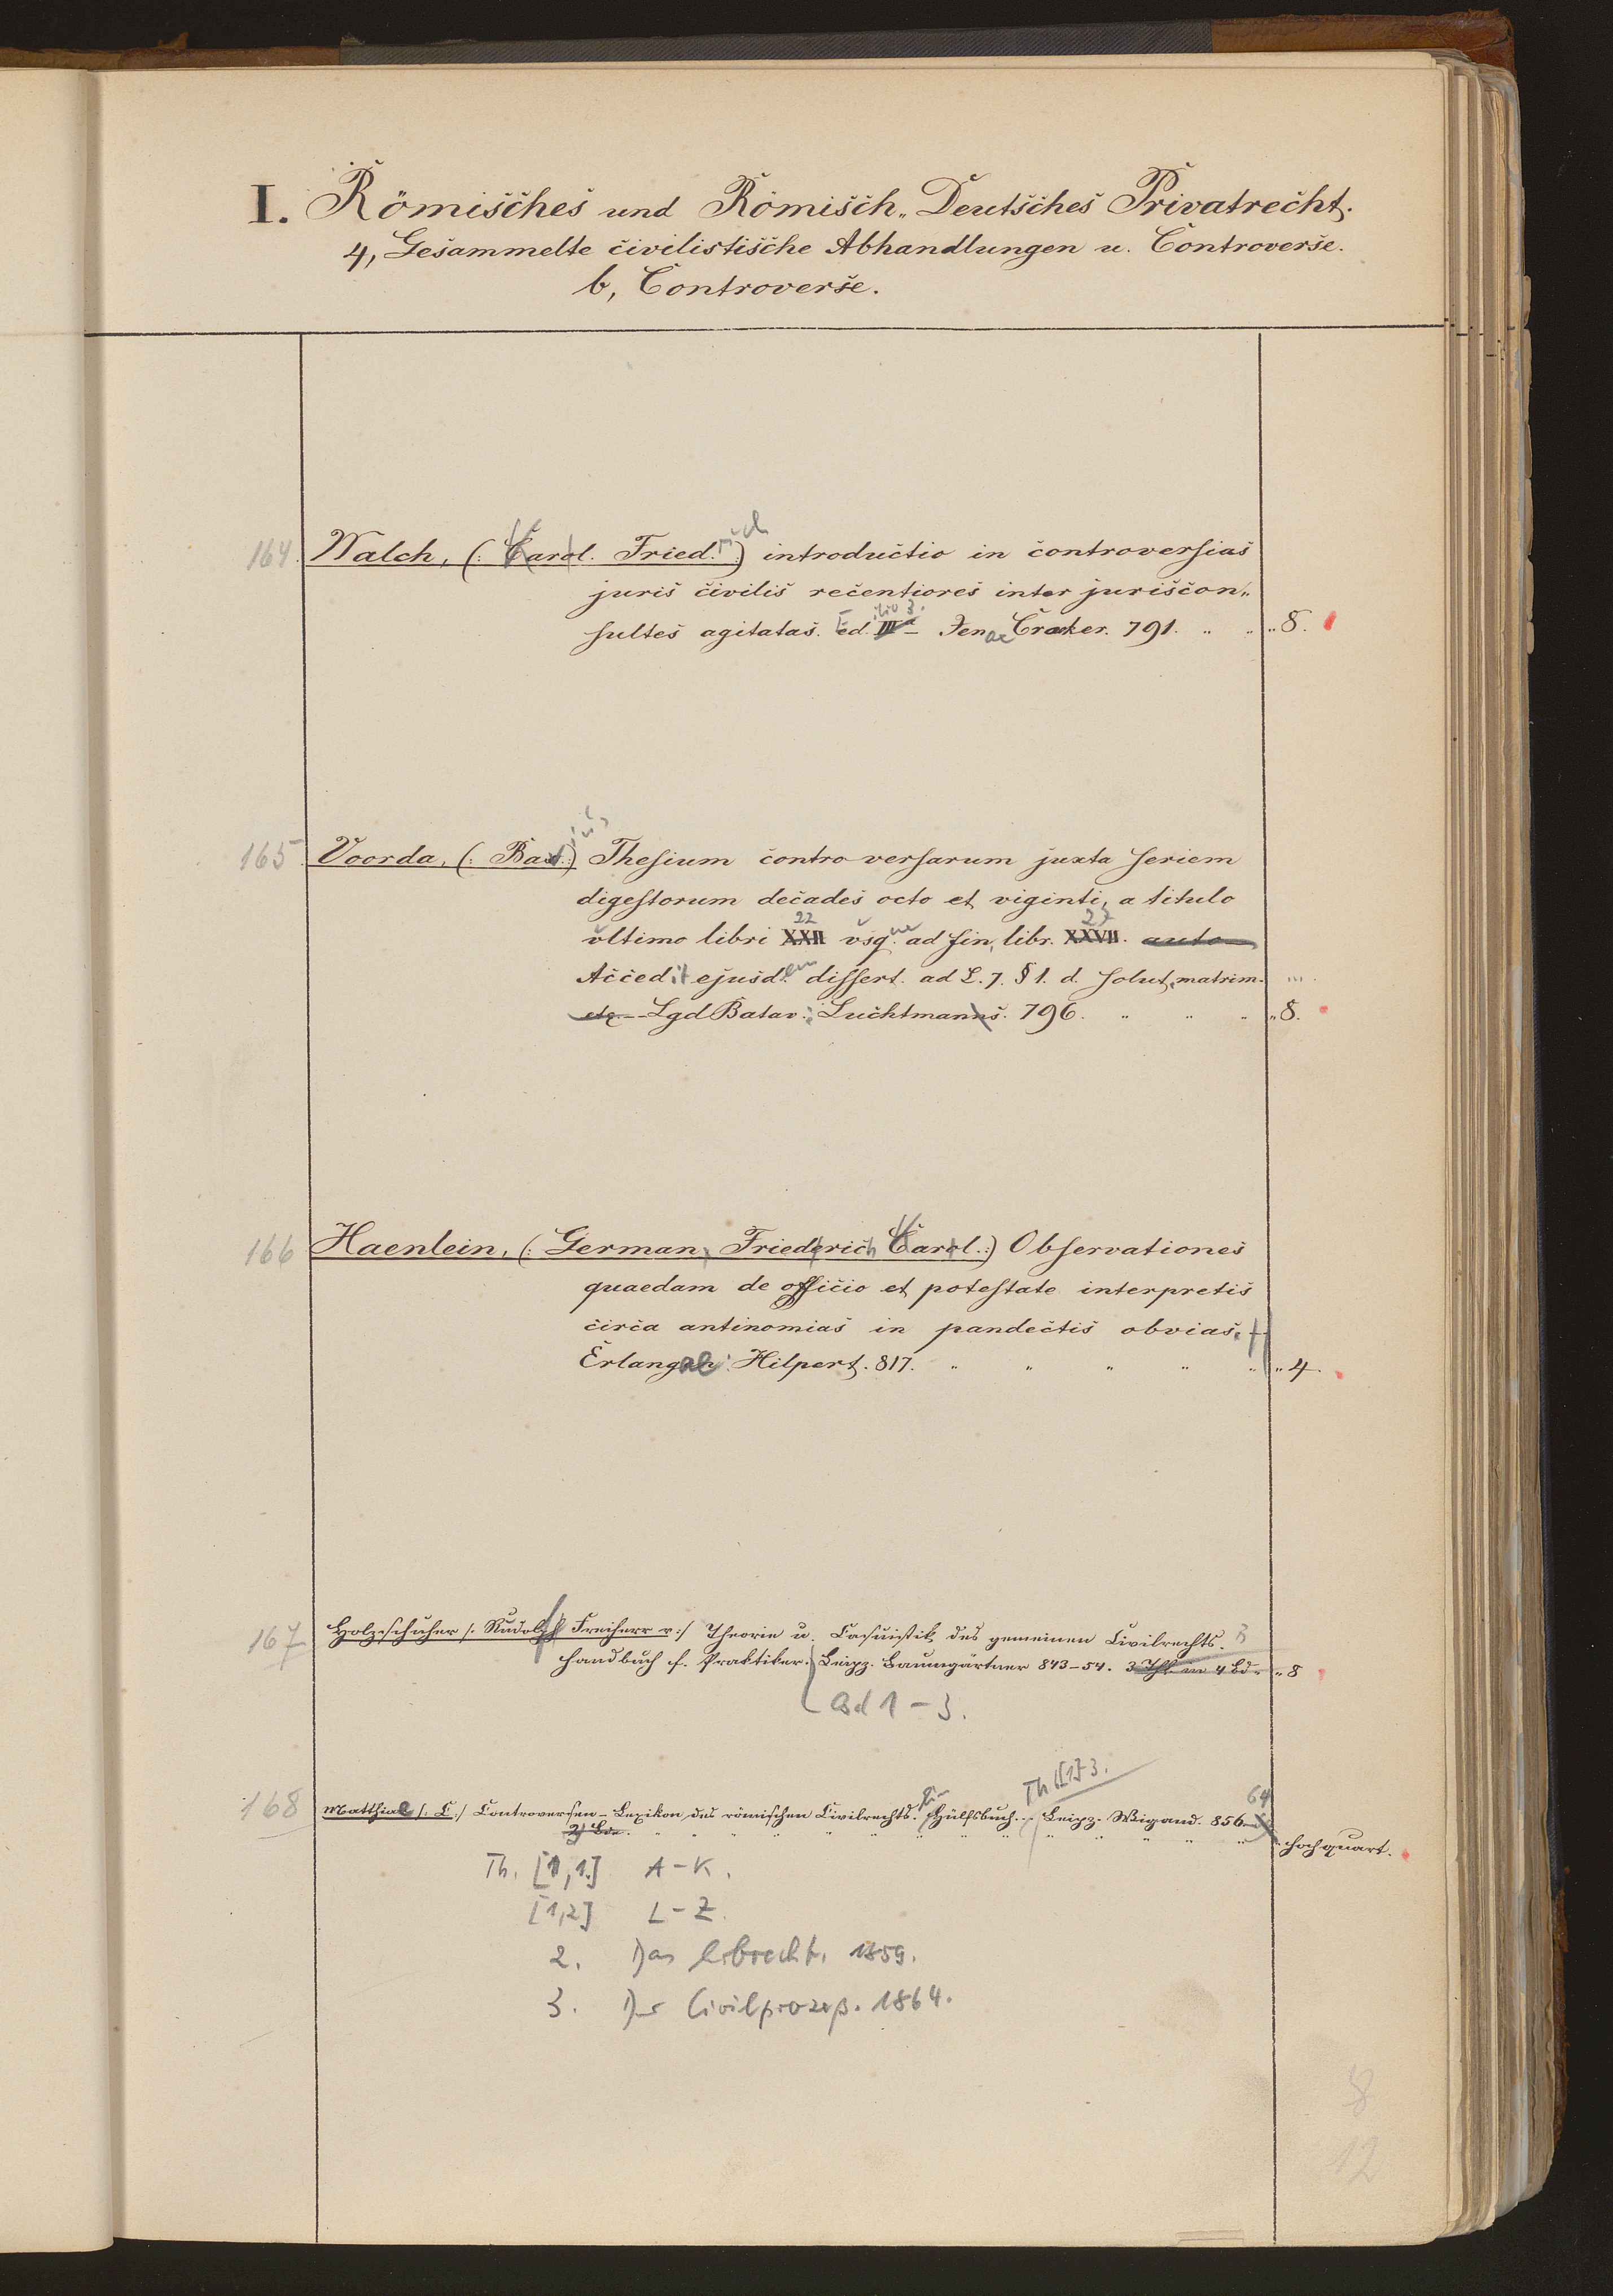 I. Römisches und Römisch-Deutsches Privatrecht.
4, Gesammelte civilistische Abhandlungen u. Controverse.
b, Controverse.
164. Walch, (: Carol. Friedrich :) introductio in controversias
juris civilis recentiores inter juriscon-
sultes agitatas. Ed. III 3. Jenae Croeker. 791. " " " 8.
165 Voorda, (: Bavius :) Thesium controversarum juxta seriem
digestorum decades octo et viginti, a titulo
22 27
ultimo libri XXII usque ad fin. libr. XXVII.
Accedit ejusdem dissert. ad L. 7. § 1. d. solut. matrim.
etc Lgd Batav. Luchtmanns. 796. " " " " 8.
166 Haenlein, (: German, Friederich Carol. :) Observationes
quaedam de officio et potestate interpretis
circa antinomias in pandectis obvias.
Erlangae Hilpert. 817. " " " " " " 4.
167 Holzschuher /: Rudolph Freiherr v :/ Theorie u. Casuistik des gemeinen Civilrechts.
Handbuch f. Praktiker. Leipz. Baumgärtner 843–54. 3 Thl. in 4 Bd. " 8
Bd 1 – 3.
Th [1]-3.
168 Matthiae /: C :/ Controversen-Lexikon des römischen Civilrechts. für Hülfsbuch. Leipz. Wigand. 856– 64
2 Bde. " " " " " " " " " " " " hochquart.
Th. [1,1.] A – K.
[1,2] L – Z.
2. Das Erbrecht. 1859.
3. Der Civilprozeß. 1864.
8
12